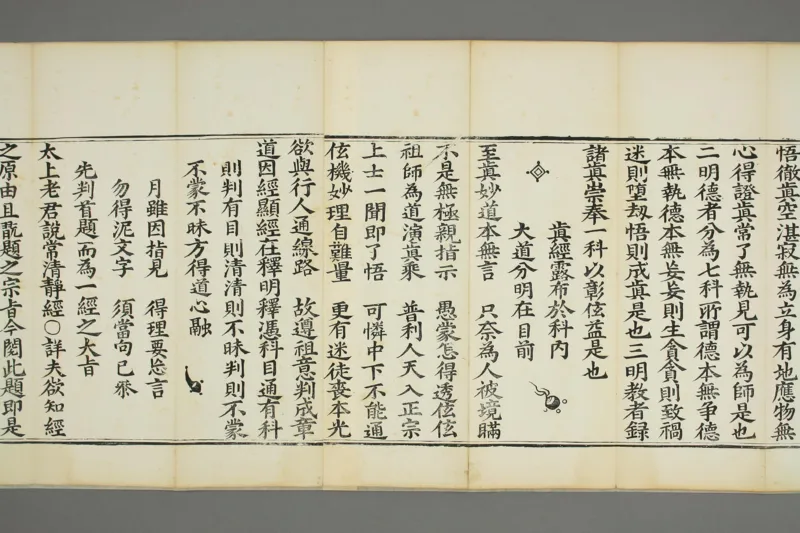 悟徹真空湛寂無為立身有地應物無
心得證真常了無執見可以為師是也
二明德者分為七科所謂德本無爭德
本無執德本無妄妄則生貪貪則致禍
迷則墮劫悟則成真是也三明教者録
諸真崇奉一科以彰伭益是也
真經露布於科內
大道分明在目前
至真妙道本無言　只奈為人被境瞞
不是無極親指示　愚蒙怎得透伭伭
祖師為道演真乘　普利人天入正宗
上士一聞即了悟　可憐中下不能通
伭機妙理自難量　更有迷徒喪本光
欲與行人通線路　故遵祖意判成章
道因經顯經在釋明釋憑科目通有科
則判有目則清清則不昧判則不蒙
不蒙不昧方得道心融
月雖因指見　得理要忘言
勿得泥文字　須當向己叅
先判首題而為一經之大旨
太上老君說常清靜經○詳夫欲知經
之原由且翫題之宗旨今閱此題即是